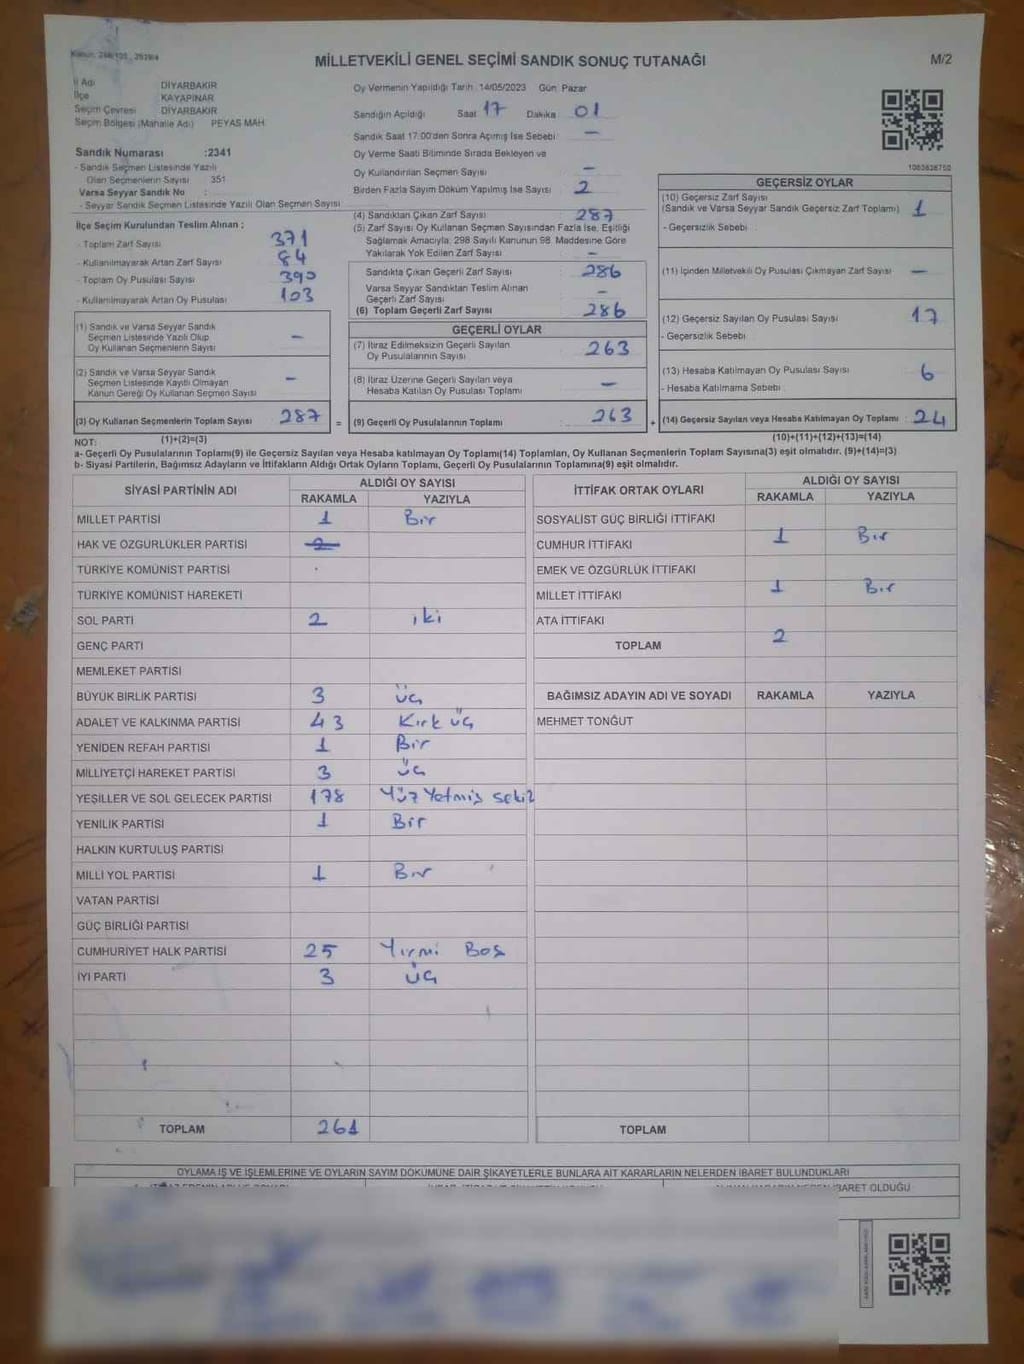 MİLLETVEKİLİ GENEL SEÇİMİ SANDIK SONUÇ TUTANAĞI
M/2
İl Adı DİYARBAKIR
İlçe KAYAPINAR
Seçim Çevresi DİYARBAKIR
Seçim Bölgesi (Mahalle Adı) PEYAS MAH.
Sandık Numarası :2341
- Sandık Seçmen Listesinde Yazılı
Olan Seçmenlerin Sayısı 351
Varsa Seyyar Sandık No :
- Seyyar Sandık Seçmen Listesinde Yazılı Olan Seçmen Sayısı
Oy Vermenin Yapıldığı Tarih : 14/05/2023 Gün: Pazar
Sandığın Açıldığı Saat 17 Dakika 01
Sandık Saat 17:00'den Sonra Açılmış İse Sebebi : —
Oy Verme Saati Bitiminde Sırada Bekleyen ve
Oy Kullandırılan Seçmen Sayısı : —
Birden Fazla Sayım Döküm Yapılmış İse Sayısı : 2
1083638750
İlçe Seçim Kurulundan Teslim Alınan ;
- Toplam Zarf Sayısı 371
- Kullanılmayarak Artan Zarf Sayısı : 84
- Toplam Oy Pusulası Sayısı 390
- Kullanılmayarak Artan Oy Pusulası 103
(1) Sandık ve Varsa Seyyar Sandık
Seçmen Listesinde Yazılı Olup
Oy Kullanan Seçmenlerin Sayısı —
(2) Sandık ve Varsa Seyyar Sandık
Seçmen Listesinde Kayıtlı Olmayan
Kanun Gereği Oy Kullanan Seçmen Sayısı —
(3) Oy Kullanan Seçmenlerin Toplam Sayısı : 287 =
(1)+(2)=(3)
(4) Sandıktan Çıkan Zarf Sayısı : 287
(5) Zarf Sayısı Oy Kullanan Seçmen Sayısından Fazla İse, Eşitliği
Sağlamak Amacıyla; 298 Sayılı Kanunun 98. Maddesine Göre
Yakılarak Yok Edilen Zarf Sayısı : —
Sandıkta Çıkan Geçerli Zarf Sayısı : 286
Varsa Seyyar Sandıktan Teslim Alınan
Geçerli Zarf Sayısı : —
(6) Toplam Geçerli Zarf Sayısı : 286
GEÇERLİ OYLAR
(7) İtiraz Edilmeksizin Geçerli Sayılan
Oy Pusulalarının Sayısı : 263
(8) İtiraz Üzerine Geçerli Sayılan veya
Hesaba Katılan Oy Pusulası Toplamı : —
(9) Geçerli Oy Pusulalarının Toplamı : 263 +
GEÇERSİZ OYLAR
(10) Geçersiz Zarf Sayısı
(Sandık ve Varsa Seyyar Sandık Geçersiz Zarf Toplamı) : 1
- Geçersizlik Sebebi :
(11) İçinden Milletvekili Oy Pusulası Çıkmayan Zarf Sayısı : —
(12) Geçersiz Sayılan Oy Pusulası Sayısı : 17
- Geçersizlik Sebebi :
(13) Hesaba Katılmayan Oy Pusulası Sayısı : 6
- Hesaba Katılmama Sebebi :
(14) Geçersiz Sayılan veya Hesaba Katılmayan Oy Toplamı : 24
(10)+(11)+(12)+(13)=(14)
NOT:
a- Geçerli Oy Pusulalarının Toplamı(9) ile Geçersiz Sayılan veya Hesaba katılmayan Oy Toplamı(14) Toplamları, Oy Kullanan Seçmenlerin Toplam Sayısına(3) eşit olmalıdır. (9)+(14)=(3)
b- Siyasi Partilerin, Bağımsız Adayların ve İttifakların Aldığı Ortak Oyların Toplamı, Geçerli Oy Pusulalarının Toplamına(9) eşit olmalıdır.
SİYASİ PARTİNİN ADI
ALDIĞI OY SAYISI
RAKAMLA YAZIYLA
MİLLET PARTİSİ 1 Bir
HAK VE ÖZGÜRLÜKLER PARTİSİ 2
TÜRKİYE KOMÜNİST PARTİSİ
TÜRKİYE KOMÜNİST HAREKETİ
SOL PARTİ 2 iki
GENÇ PARTİ
MEMLEKET PARTİSİ
BÜYÜK BİRLİK PARTİSİ 3 üç
ADALET VE KALKINMA PARTİSİ 43 Kırk üç
YENİDEN REFAH PARTİSİ 1 Bir
MİLLİYETÇİ HAREKET PARTİSİ 3 üç
YEŞİLLER VE SOL GELECEK PARTİSİ 178 Yüz Yetmiş sekiz
YENİLİK PARTİSİ 1 Bir
HALKIN KURTULUŞ PARTİSİ
MİLLİ YOL PARTİSİ 1 Bir
VATAN PARTİSİ
GÜÇ BİRLİĞİ PARTİSİ
CUMHURİYET HALK PARTİSİ 25 Yirmi Beş
İYİ PARTİ 3 üç
TOPLAM 261
İTTİFAK ORTAK OYLARI
ALDIĞI OY SAYISI
RAKAMLA YAZIYLA
SOSYALİST GÜÇ BİRLİĞİ İTTİFAKI
CUMHUR İTTİFAKI 1 Bir
EMEK VE ÖZGÜRLÜK İTTİFAKI
MİLLET İTTİFAKI 1 Bir
ATA İTTİFAKI
TOPLAM 2
BAĞIMSIZ ADAYIN ADI VE SOYADI RAKAMLA YAZIYLA
MEHMET TONĞUT
TOPLAM
OYLAMA İŞ VE İŞLEMLERİNE VE OYLARIN SAYIM DÖKÜMÜNE DAİR ŞİKAYETLERLE BUNLARA AİT KARARLARIN NELERDEN İBARET BULUNDUKLARI
İBARET OLDUĞU